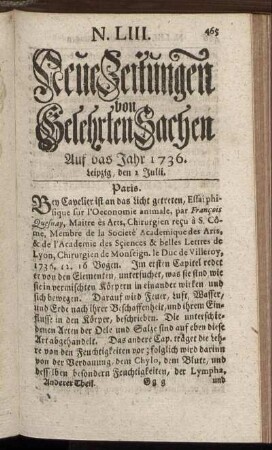 N. LIII.
465
Neue Zeitungen
von
Gelehrten Sachen
Auf das Jahr 1736.
Leipzig, den 2 Julii.
Paris.
Bey Cavelier ist an das Licht getreten, Essai phi-
sique sur l'Oeconomie animale, par François
Quesnay, Maitre ès Arts, Chirurgien reçu à S. Cô-
me, Membre de la Societé Academique des Arts,
& de l'Academie des Sciences & belles Lettres de
Lyon, Chirurgien de Monseign. le Duc de Villeroy,
1736, 12. 16 Bogen. Im ersten Capitel redet
er von den Elementen, untersuchet, was sie sind wie
sie in vermischten Körpern in einander wirken und
sich bewegen. Darauf wird Feuer, Luft, Wasser,
und Erde nach ihrer Beschaffenheit, und ihrem Ein-
flusse in den Körper, beschrieben. Die unterschie-
denen Arten der Oele und Salze sind auf eben diese
Art abgehandelt. Das andere Cap. träget die Leh-
re von den Feuchtigkeiten vor; folglich wird darinn
von der Verdauung, dem Chylo, dem Blute, und
desselben besondern Feuchtigkeiten, der Lympha,
Anderer Theil. Ggg und